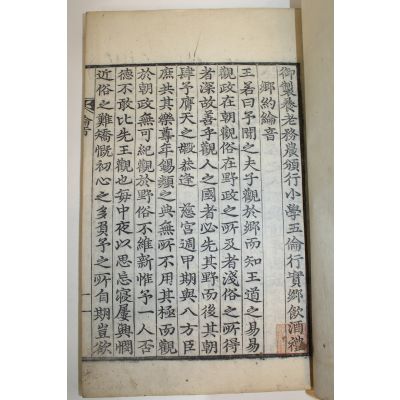 御製養老務農頒行小學五倫行實鄉飲酒禮
鄉約綸音
王若曰予聞之夫子觀於鄉而知王道之易易
觀政在朝觀俗在野政之所及者淺俗之所得
者深故善乎觀人之國者必先其野而後其朝
肆予膺天之嘏恭逢 慈宮週甲期與八方臣
庶共其樂專年錫類之典無所不用其極而觀
於朝政無可紀觀於野俗不維新惟予一人否
德不敢比先王觀也每中夜以思忘寢屢興憫
近俗之難矯慨初心之多負予之所自期豈欲
綸音
一